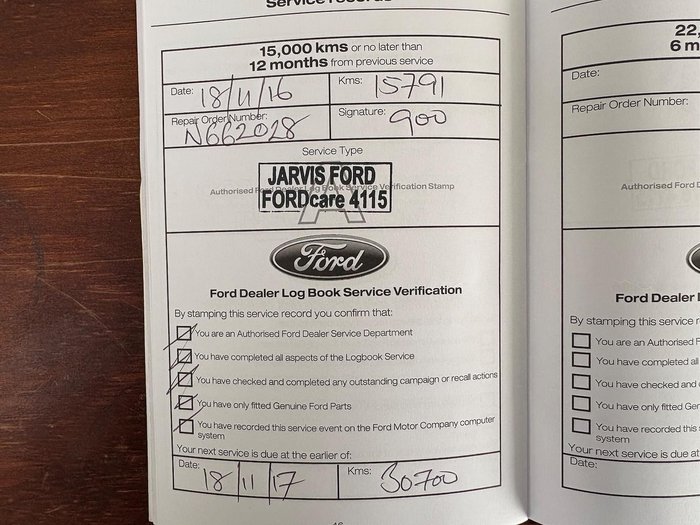 Service records
15,000 kms or no later than
12 months from previous service
Date: 18/11/16 Kms: 15791
Repair Order Number: N662028 Signature: 900
Service Type
JARVIS FORD
Authorised Ford Dealer Log Book Service Verification Stamp
FORDcare 4115
A
Ford
Ford Dealer Log Book Service Verification
By stamping this service record you confirm that:
You are an Authorised Ford Dealer Service Department
You have completed all aspects of the Logbook Service
You have checked and completed any outstanding campaign or recall actions
You have only fitted Genuine Ford Parts
You have recorded this service event on the Ford Motor Company computer
system
Your next service is due at the earlier of:
Date: 18/11/17 Kms: 30700
22,
6 m
Date:
Repair Order Number:
Authorised Ford D
Ford Dealer l
By stamping this service r
You are an Authorised F
You have completed all
You have checked and c
You have only fitted Gen
You have recorded this s
system
Your next service is due at
Date: